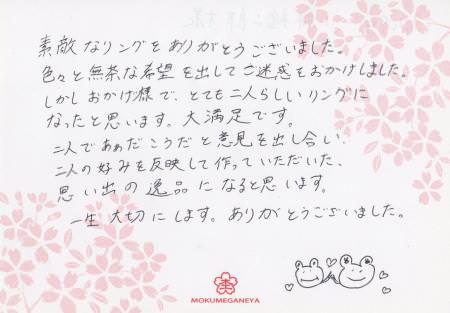 素敵なリングをありがとうございました。
色々と無茶な希望を出してご迷惑をおかけしました。
しかしおかげ様で、とても二人らしいリングに
なったと思います。大満足です。
二人であぁだこうだと意見を出し合い、
二人の好みを反映して作っていただいた、
思い出の逸品になると思います。
一生大切にします。ありがとうございました。
MOKUMEGANEYA